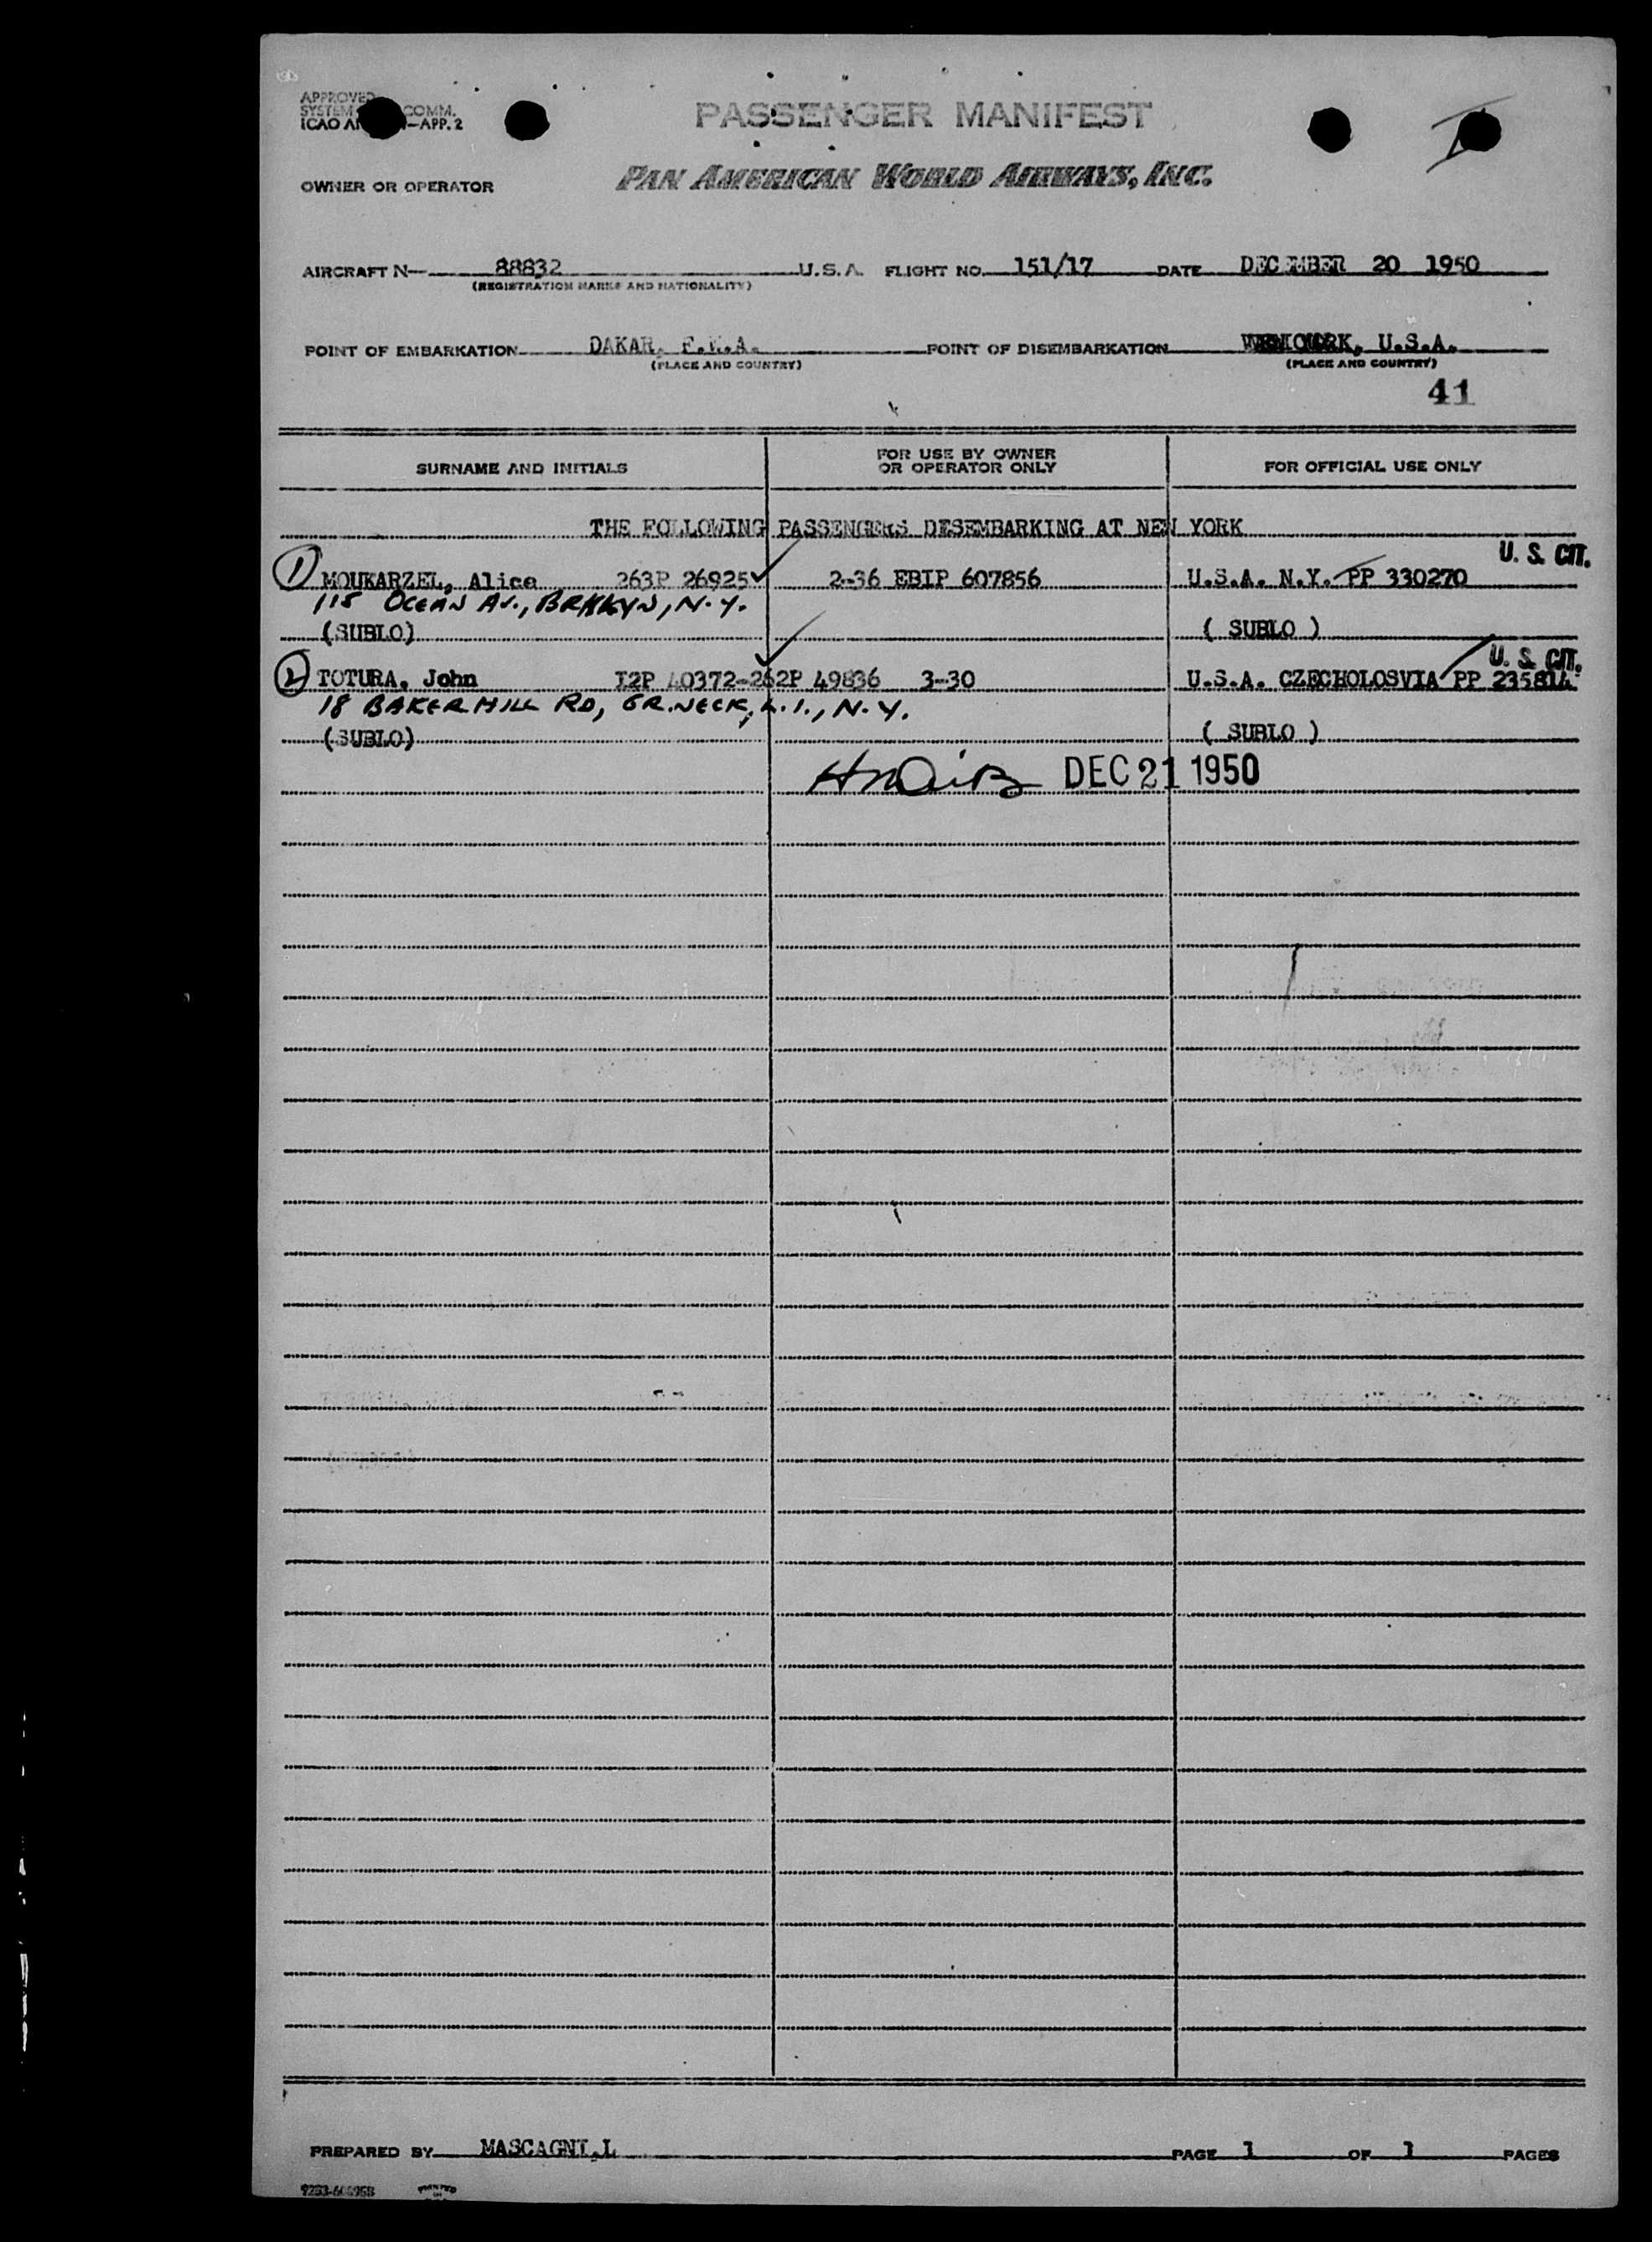 APPROVED
SYSTEM COMM.
ICAO AN -APP. 2
PASSENGER MANIFEST
OWNER OR OPERATOR PAN AMERICAN WORLD AIRWAYS, INC.
AIRCRAFT N- 88832 U.S.A. FLIGHT NO. 151/17 DATE DECEMBER 20 1950
(REGISTRATION MARKS AND NATIONALITY)
POINT OF EMBARKATION DAKAR, F.W.A. POINT OF DISEMBARKATION YORK, U.S.A.
(PLACE AND COUNTRY) (PLACE AND COUNTRY)
41
SURNAME AND INITIALS FOR USE BY OWNER OR OPERATOR ONLY FOR OFFICIAL USE ONLY
THE FOLLOWING PASSENGERS DESEMBARKING AT NEW YORK
U. S. CIT.
1 MOUKARZEL, Alice 263P 26925 2-36 EBIP 607856 U.S.A. N.Y. PP 330270
115 OCEAN AV., BRKLYN, N.Y.
(SUBLO) ( SUBLO )
U. S. CIT.
2 TOTURA, John I2P 40372-262P 49836 3-30 U.S.A. CZECHOLOSVIA PP 235814
18 BAKER HILL RD, GR. NECK, L.I., N.Y.
(SUBLO) ( SUBLO )
DEC 21 1950
PREPARED BY MASCAGNI.L PAGE 1 OF 1 PAGES